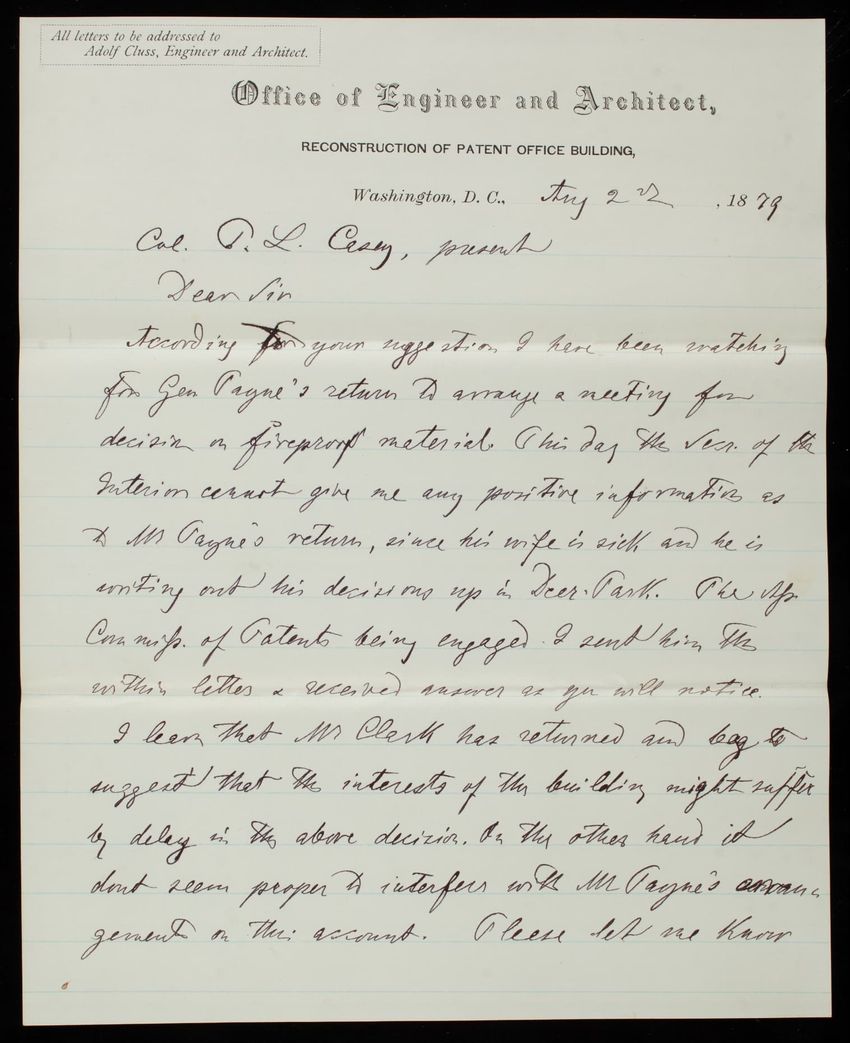 All letters to be addressed to
Adolf Cluss, Engineer and Architect.
Office of Engineer and Architect,
RECONSTRUCTION OF PATENT OFFICE BUILDING,
Washington, D. C., Aug 2nd, 1879
Col. T. L. Casey, present
Dear Sir
According for your suggestion I have been watching
for Gen Payne's return to arrange a meeting for
decision on fireproof material. This day the Secr. of the
Interior cannot give me any positive information as
to Mr Payne's return, since his wife is sick and he is
writing out his decisions up in Deer-Park. The
Commiss. of Patents being engaged I sent him the
within letter & received answer as you will notice.
I learn that Mr Clark has returned and beg to
suggest that the interests of the building might suffer
by delay in the above decision. On the other hand it
dont seem proper to interfere with Mr Payne's arran
gements on this account. Please let me know